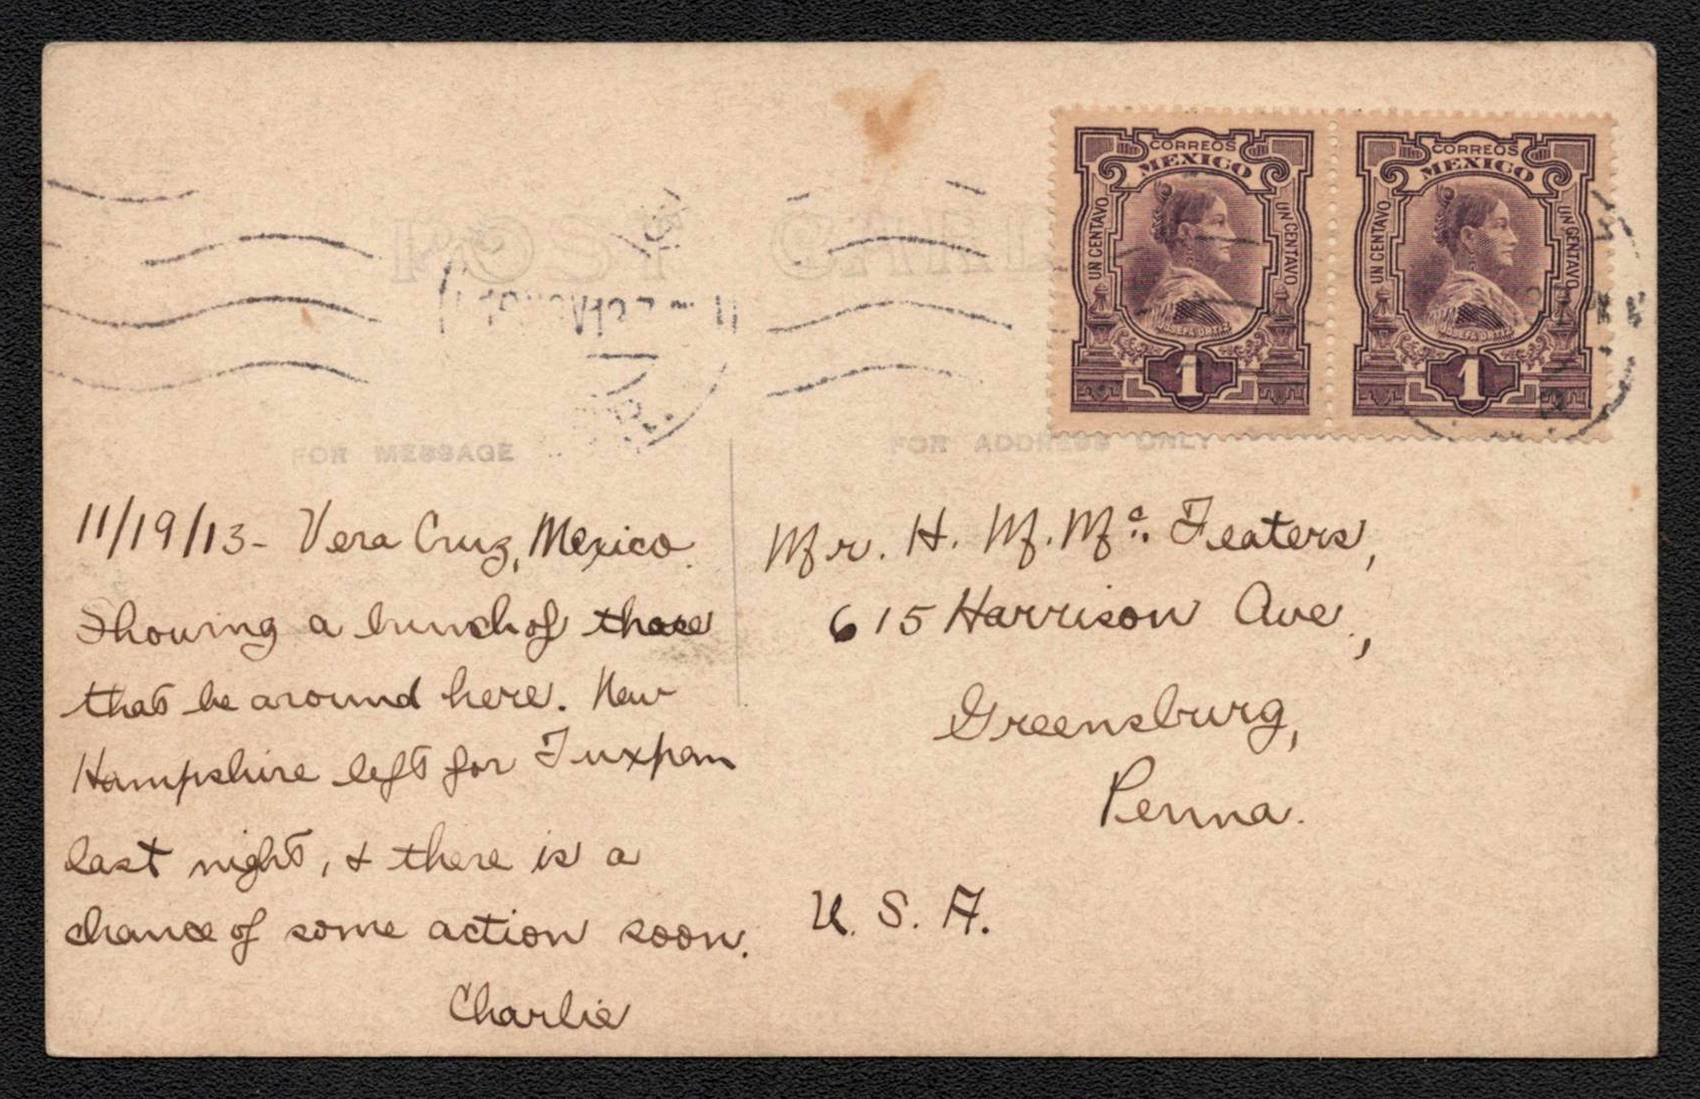 POST CARD
CORREOS
MEXICO
UN CENTAVO
UN CENTAVO
JOSEFA ORTIZ
1
CORREOS
MEXICO
UN CENTAVO
UN CENTAVO
JOSEFA ORTIZ
1
FOR MESSAGE
FOR ADDRESS ONLY
11/19/13 - Vera Cruz, Mexico.
Showing a bunch of those
that be around here. New
Hampshire left for Tuxpam
last night, & there is a
chance of some action soon.
Charlie
Mr. H. M. Mc. Featers,
615 Harrison Ave.,
Greensburg,
Penna.
U. S. A.